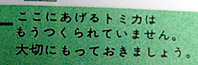 ここにあげるトミカは
もうつくられていません。
大切にもっておきましょう。